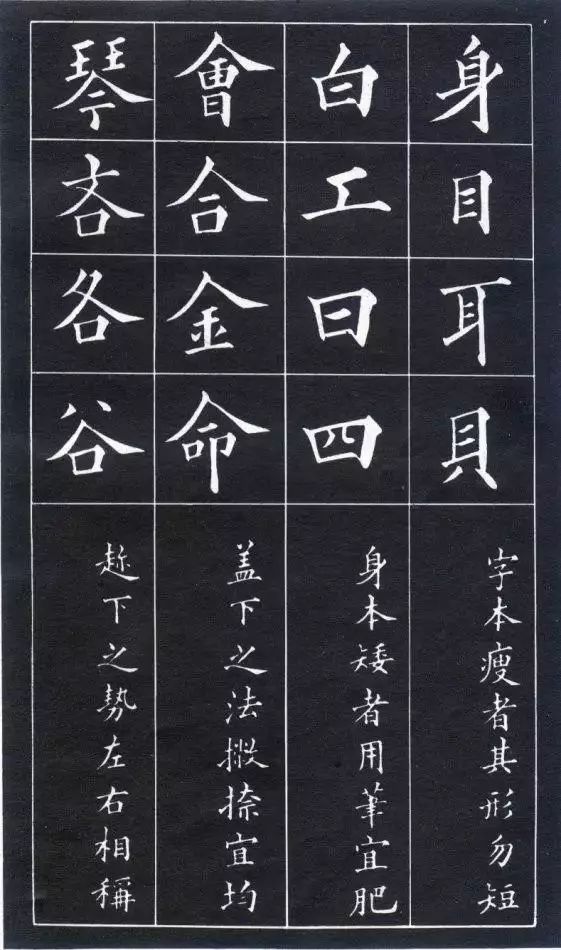 身目耳貝
字本瘦者其形勿短
白工曰四
身本矮者用筆宜肥
會合金命
盖下之法撇捺宜均
琴吝各谷
趂下之勢左右相稱